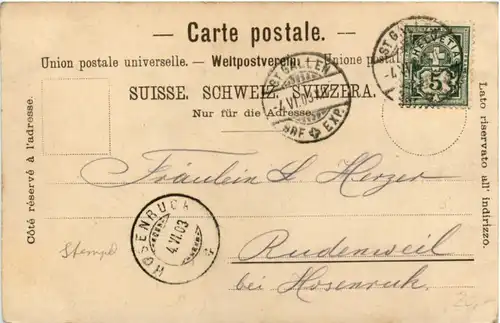 — Carte postale. —
Union postale universelle. — Weltpostverein. — Unione postale
SUISSE. SCHWEIZ. SVIZZERA.
Nur für die Adresse.
Côté réservé à l'adresse.
Lato riservato all' indirizzo.
HELVETIA
5
ST. GALLEN
-4.VI.03
BRF. EXP.
ST. GALLEN
-4.
Fräulein L. Herzer
Rudenweil
bei Hosenruck
HOSENRUCK
4.VI.03
Stempel